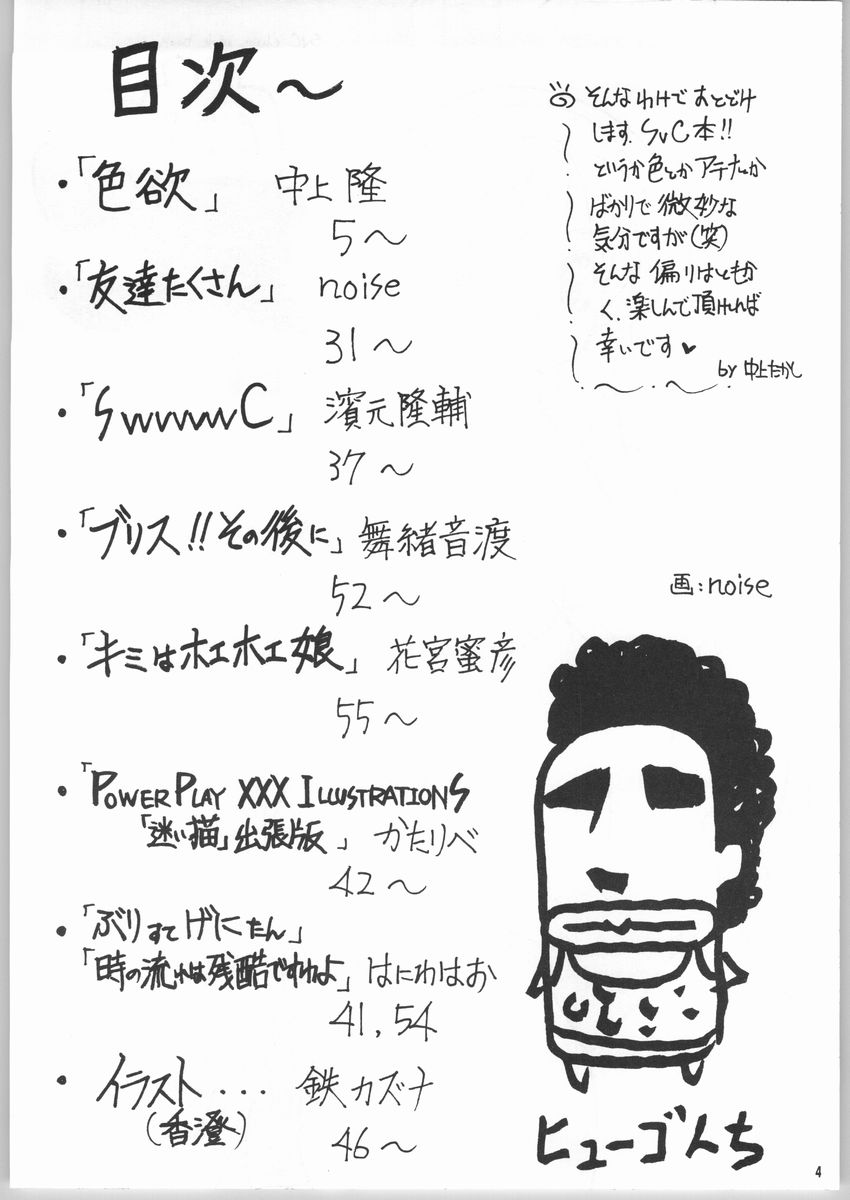 目次〜
・「色欲」 中上隆
5〜
・「友達たくさん」 noise
31〜
・「SwvvwwC」 濱元隆輔
37〜
・「ブリス!!その後に」舞緒音渡
52〜
・「キミはホエホエ娘」 花宮蜜彦
55〜
・「POWER PLAY XXX ILLUSTRATIONS
「迷い猫」出張版」 かたりべ
42〜
・「ぶりすてげにたん」
「時の流れは残酷ですわよ」はにわはお
41,54
・ イラスト... 鉄カズナ
(香澄) 46〜
そんなわけでおとどけ
します。SvC本!!
というか色とかアテナとか
ばかりで微妙な
気分ですが(笑)
そんな偏りはともか
く、楽しんで頂ければ
幸いです♥
by 中上たかし
画:noise
ヒューゴんち
4